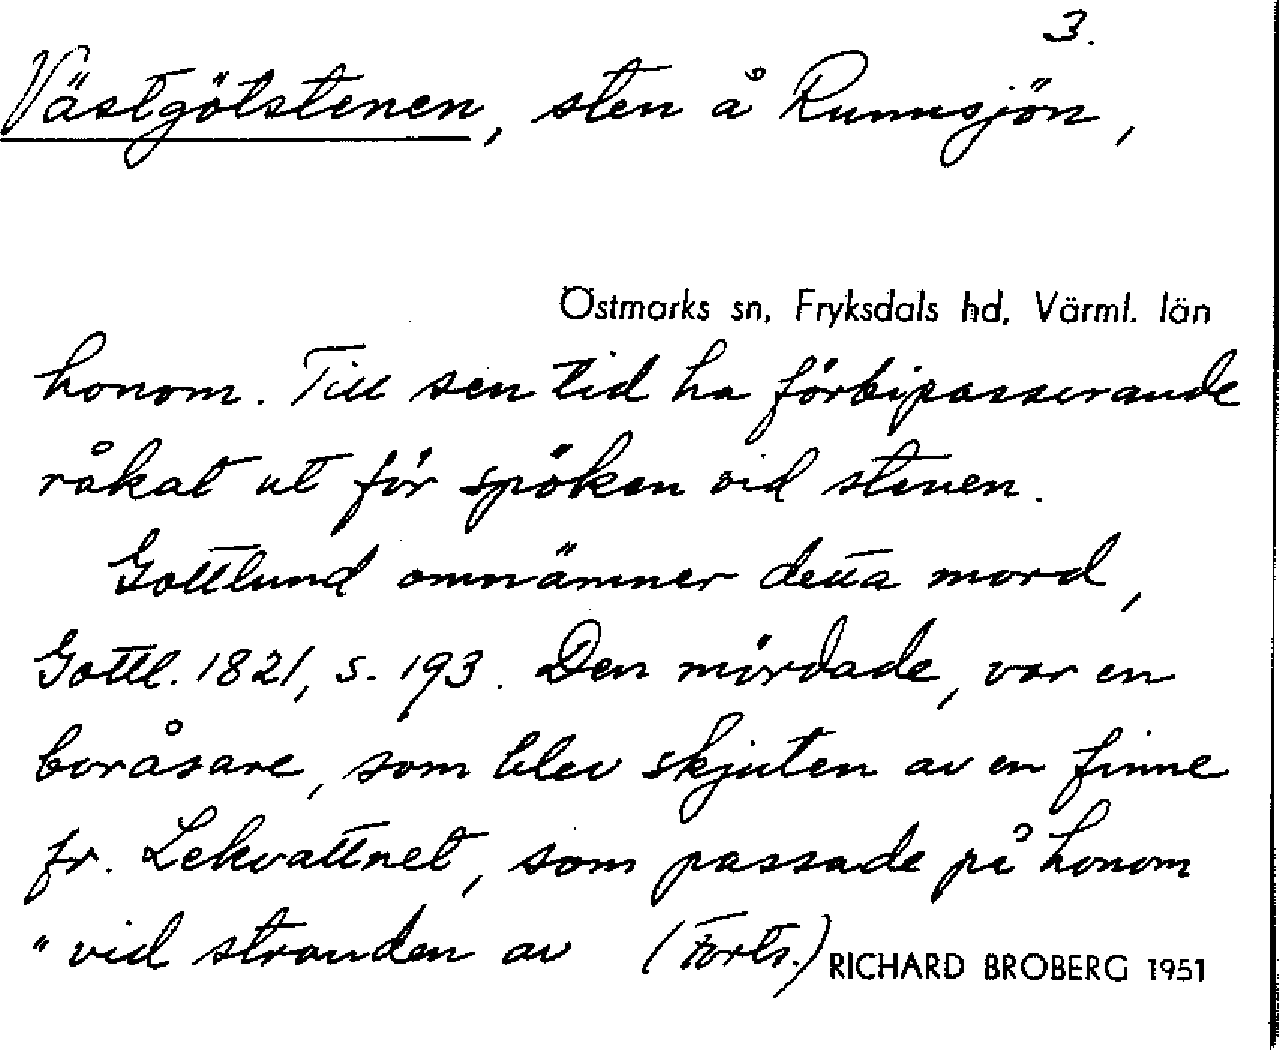 3.
Västgötstenen, sten å Runnsjön,
Östmarks sn, Fryksdals hd, Värml. län
honom. Till sen tid ha förbipasserande
råkat ut för spöken vid stenen.
Gottlund omnämner detta mord,
Gottl. 1821, s. 193. Den mördade, var en
boråsare, som blev skjuten av en finne
fr. Lekvattnet, som passade på honom
"vid stranden av (Forts.)
RICHARD BROBERG 1951